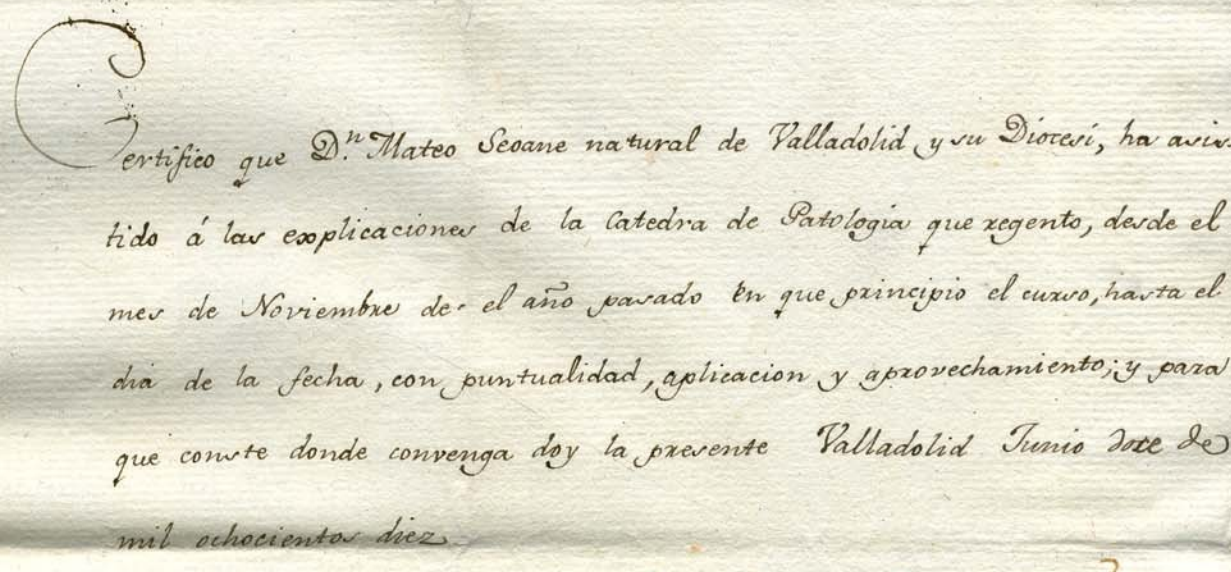 Certifico que D.n Mateo Seoane natural de Valladolid y su Diocesi, ha asis-
tido á las explicaciones de la Catedra de Patologia que regento, desde el
mes de Noviembre de el año pasado en que principio el curso, hasta el
dia de la fecha, con puntualidad, aplicacion y aprovechamiento; y para
que conste donde convenga doy la presente Valladolid Junio doce de
mil ochocientos diez